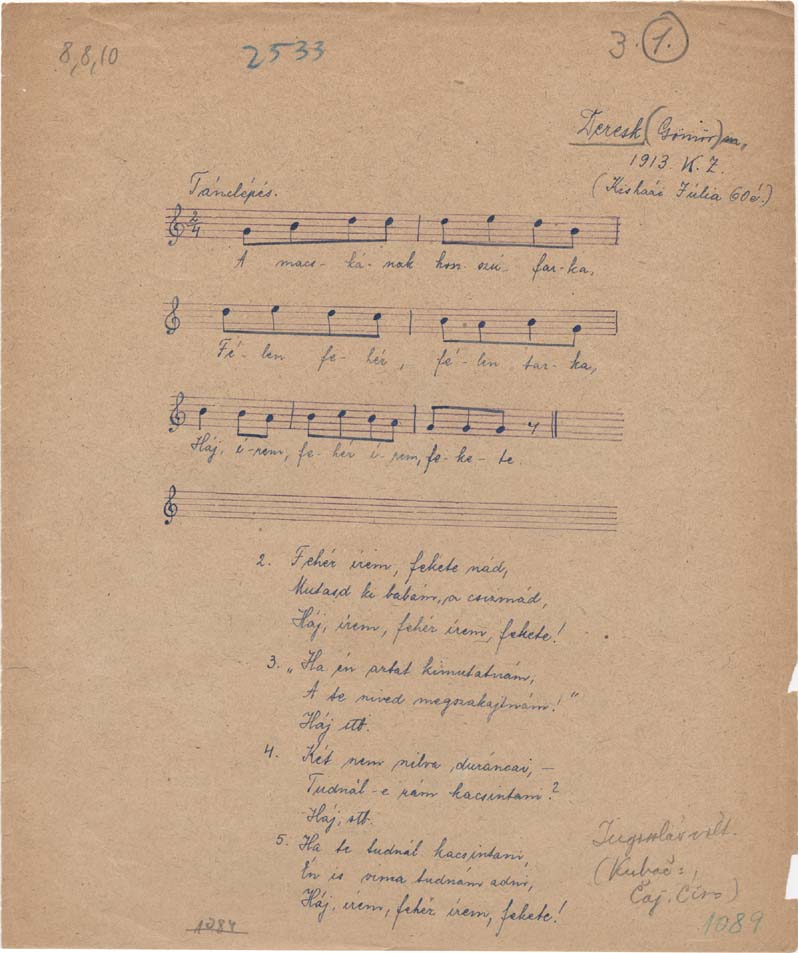 8,8,10
2533
3. 1.
Deresk (Gömör) m,
1913. K. Z.
(Kisházi Júlia 60é.)
Tánclépés.
2/4
A macs- ká- nak hos- szú- far-ka,
Fé- len fe- hér, fé- lin tar- ka,
Háj, i-rem, fe- hér i- rem, fe- ke- te.
2. Fehér irem, fekete nád,
Mutasd ki babám, a csizmád,
Háj, irem, fehér irem, fekete!
3. „Ha én aztat kimutatnám,
A te nived megszakajtnám!"
Háj stb.
4. Két nem nilva duráncai, –
Tudnál-e rám kacsintani?
Háj, stb.
5. Ha te tudnál kacsintani,
Én is vima tudnám adni,
Háj, irem, fehér irem, fekete!
Jugoszláv vált.
(Kubač:
Čaj, Ciro)
1084
1089